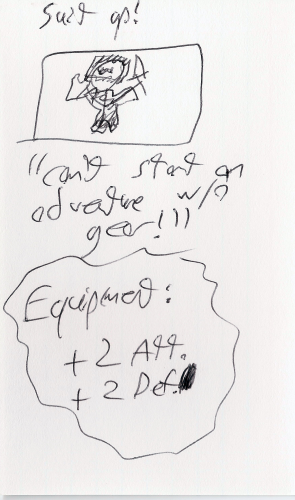 Suit up!
"Can't start an
adventure w/o
gear!!"
Equipment:
+2 Att.
+2 Def.